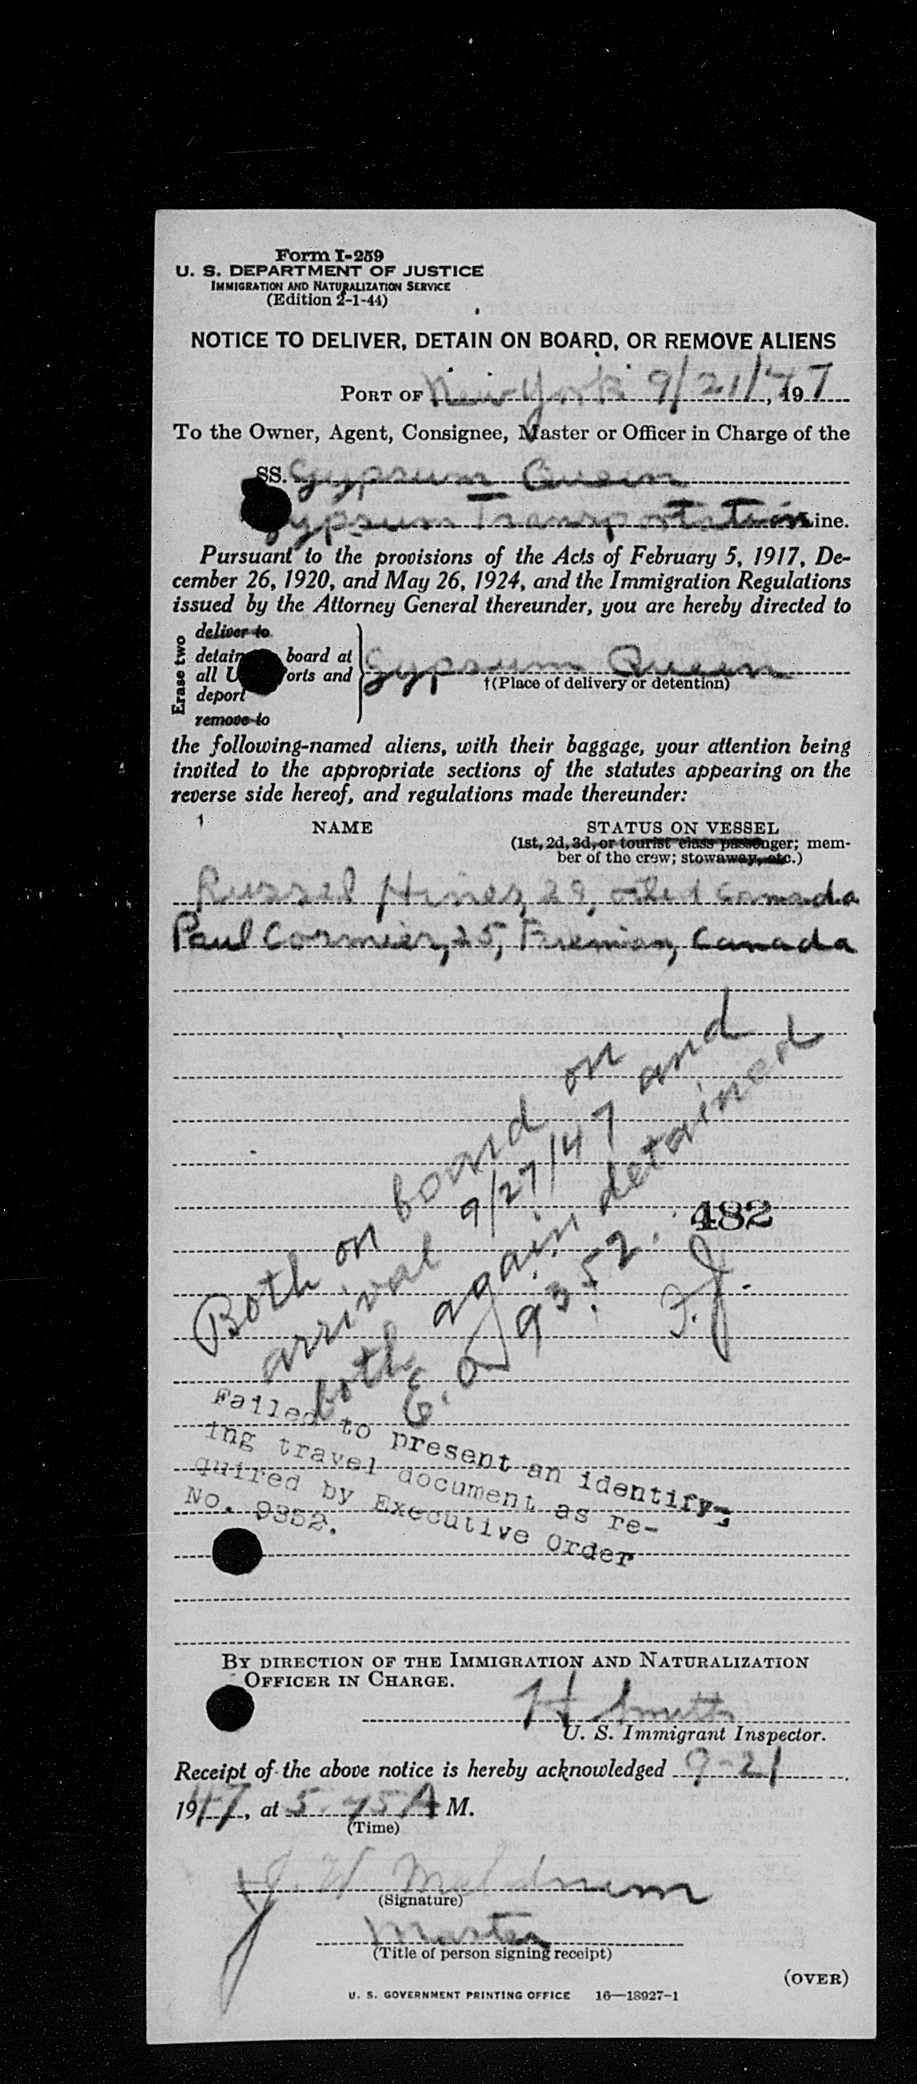 Form I-259
U. S. DEPARTMENT OF JUSTICE
IMMIGRATION AND NATURALIZATION SERVICE
(Edition 2-1-44)
NOTICE TO DELIVER, DETAIN ON BOARD, OR REMOVE ALIENS
PORT OF New York 9/21/47, 197
To the Owner, Agent, Consignee, Master or Officer in Charge of the
SS. Gypsum Queen
Gypsum Transportation Line.
Pursuant to the provisions of the Acts of February 5, 1917, De-
cember 26, 1920, and May 26, 1924, and the Immigration Regulations
issued by the Attorney General thereunder, you are hereby directed to
Erase two
deliver to
detain board at
all U orts and
deport
remove to
Gypsum Queen
†(Place of delivery or detention)
the following-named aliens, with their baggage, your attention being
invited to the appropriate sections of the statutes appearing on the
reverse side hereof, and regulations made thereunder:
NAME STATUS ON VESSEL
(1st, 2d, 3d, or tourist class passenger; mem-
ber of the crew; stowaway, etc.)
Russel Hines, 28, Canada
Paul Cormier, 25, Fireman, Canada
Both on board on
arrival 9/27/47 and
both again detained
E.O. 9352.
482
F.J.
Failed to present an identify-
ing travel document as re-
quired by Executive Order
No. 9352.
BY DIRECTION OF THE IMMIGRATION AND NATURALIZATION
OFFICER IN CHARGE.
H Smith
U. S. Immigrant Inspector.
Receipt of the above notice is hereby acknowledged 9-21
1947, at 5 45 A M.
(Time)
J. W.
(Signature)
Master
(Title of person signing receipt)
(OVER)
U. S. GOVERNMENT PRINTING OFFICE 16—18927-1